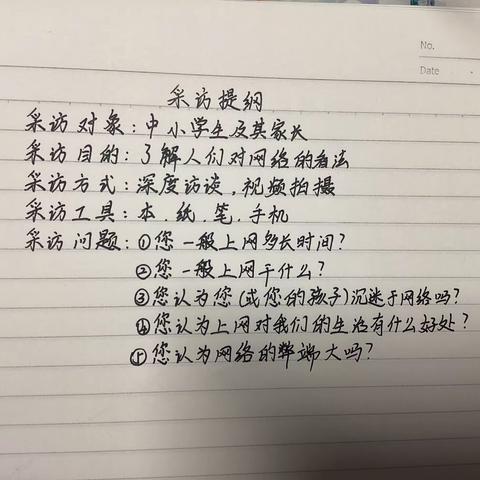 No.
Date
采访提纲
采访对象:中小学生及其家长
采访目的:了解人们对网络的看法
采访方式:深度访谈,视频拍摄
采访工具:本、纸、笔、手机
采访问题:①您一般上网多长时间?
②您一般上网干什么?
③您认为您(或您的孩子)沉迷于网络吗?
④您认为上网对我们的生活有什么好处?
⑤您认为网络的弊端大吗?